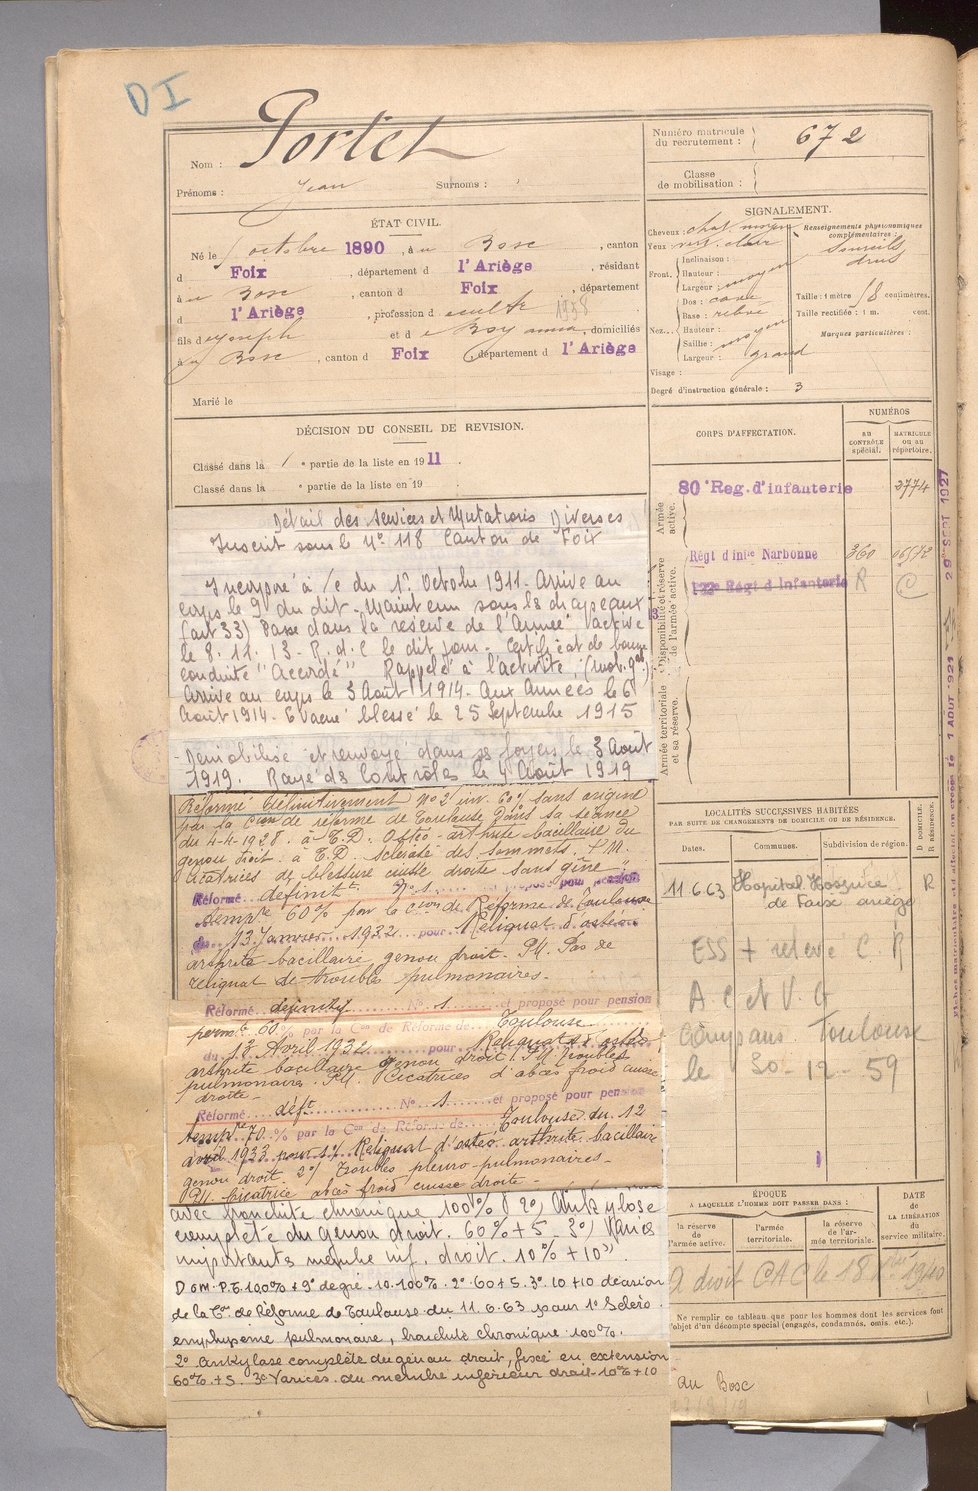 DI
Nom : Portet
Prénoms : Jean Surnoms :
Numéro matricule du recrutement : 672
Classe de mobilisation :
ÉTAT CIVIL.
Né le 5 octobre 1890, à u Bosc, canton
d Foix, département d l'Ariège, résidant
à u Bosc, canton d Foix, département
d l'Ariège, profession d cultr 1958
fils de Joseph et d e Boy anna, domiciliés
à u Bosc, canton d Foix, département d l'Ariège
Marié le
DÉCISION DU CONSEIL DE REVISION.
Classé dans la 1e partie de la liste en 1911.
Classé dans la e partie de la liste en 19 .
SIGNALEMENT.
Cheveux : chat. moyen
Yeux : clair
Front. Inclinaison :
Hauteur :
Largeur : moyen
Nez. Dos : cave
Base : relevé
Hauteur :
Saillie : moyen
Largeur : grand
Visage :
Renseignements physionomiques complémentaires :
Sourcils drus
Taille : 1 mètre 58 centimètres.
Taille rectifiée : 1 m. cent.
Marques particulières :
Degré d'instruction générale : 3
CORPS D'AFFECTATION.
NUMÉROS
AU CONTRÔLE SPÉCIAL.
MATRICULE OU AU RÉPERTOIRE.
Armée active.
80e Reg. d'infanterie 3774
Disponibilité et réserve de l'armée active.
Régt d'infie Narbonne 360
122e Régt d'Infanterie R C
Armée territoriale et sa réserve.
Détail des services et Mutations Diverses
Inscrit sous le No 118 Canton de Foix
Incorporé à /c du 1er Octobre 1911. Arrivé au
corps le 9 du dit. Maintenu sous les drapeaux
(art 33) Passe dans la réserve de l'Armée active
le 8. 11. 13. R. d. C le dit jour. Certificat de bonne
conduite "Accordé" Rappelé à l'activité (mob. gale).
Arrivé au corps le 3 Août 1914. Aux Armées le 6
Août 1914. Evacué blessé le 25 Septembre 1915
Démobilisé et renvoyé dans ses foyers le 3 Août
1919. Rayé des Contrôles le 4 Août 1919
Réformé définitivement No 2 inv. 60% sans origine
par la Cion de réforme de Toulouse dans sa séance
du 4-4-1928. à T.D. Ostéo-arthrite bacillaire du
genou droit : à T.D. sclérose des sommets. P.M.
cicatrices de blessure cuisse droite sans gêne
Réformé définitt No 1 et proposé pour pension
tempre 60% par la Cion de Réforme de Toulouse
du 13 Janvier 1932 pour Reliquat d'ostéo
arthrite bacillaire genou droit. P.M. Pas de
reliquat de troubles pulmonaires.
Réformé définitif No 1 et proposé pour pension
permte 60 % par la Con de Réforme de Toulouse
du 13 Avril 1932 pour Reliquats ostéo
arthrite bacillaire genou droit. P.M. troubles
pulmonaires. P.M. Cicatrices d'abcès froid cuisse
droite.
Réformé déft No 1 et proposé pour pension
tempre 70 % par la Con de Réforme de Toulouse du 12
avril 1933 pour 1°/ Reliquat d'ostéo arthrite bacillaire
genou droit. 2°/ Troubles pleuro-pulmonaires.
P.M. Cicatrice abcès froid cuisse droite.
avec bronchite chronique 100% 2°) Ankylose
complète du genou droit. 60% + 5 3°) Varices
importants membre inf. droit. 10% + 10"
Dom. P.G. 100% + 9e degré. 10.100%. 2° 60+5. 3° 10+10 décision
de la Con de Réforme de Toulouse du 11.6.63 pour 1° Scléro.
emphysème pulmonaire, bronchite chronique 100%.
2° ankylose complète du genou droit, fixé en extension
60% + 5. 3° Varices du membre inférieur droit. 10% + 10
LOCALITÉS SUCCESSIVES HABITÉES
PAR SUITE DE CHANGEMENTS DE DOMICILE OU DE RÉSIDENCE.
Dates. Communes. Subdivision de région. D DOMICILE. R RÉSIDENCE.
11.6.63 Hopital Hospice R
de Foix ariège
ESS + relevé C. R
A. C et V. G
Compans Toulouse
le 30-12-59
ÉPOQUE
À LAQUELLE L'HOMME DOIT PASSER DANS :
la réserve de l'armée active.
l'armée territoriale.
la réserve de l'armée territoriale.
DATE de LA LIBÉRATION du service militaire.
A droit CAC le 18 1940
Ne remplir ce tableau que pour les hommes dont les services font
l'objet d'un décompte spécial (engagés, condamnés, omis, etc.).
au Bosc
1 AOUT 1921
29 SEPT 1927